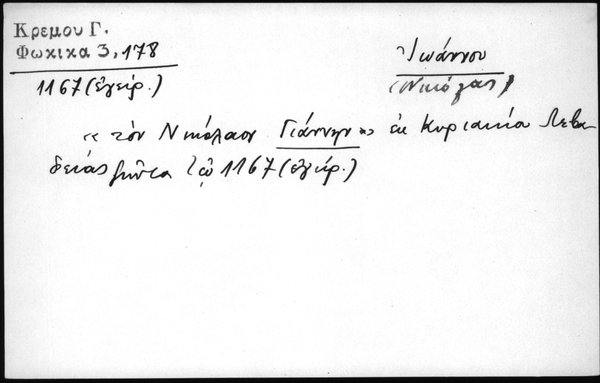 Κρεμου Γ.
Φωκικα 3, 178
1167 (ἐγείρ.)
Ἰωάννου
(Νικόλαος)
« τὸν Νικόλαον Γιάννην » ἐκ Κυριακίου Λεβα-
δειάς ζῶντα τῷ 1167 (ἐγείρ.)